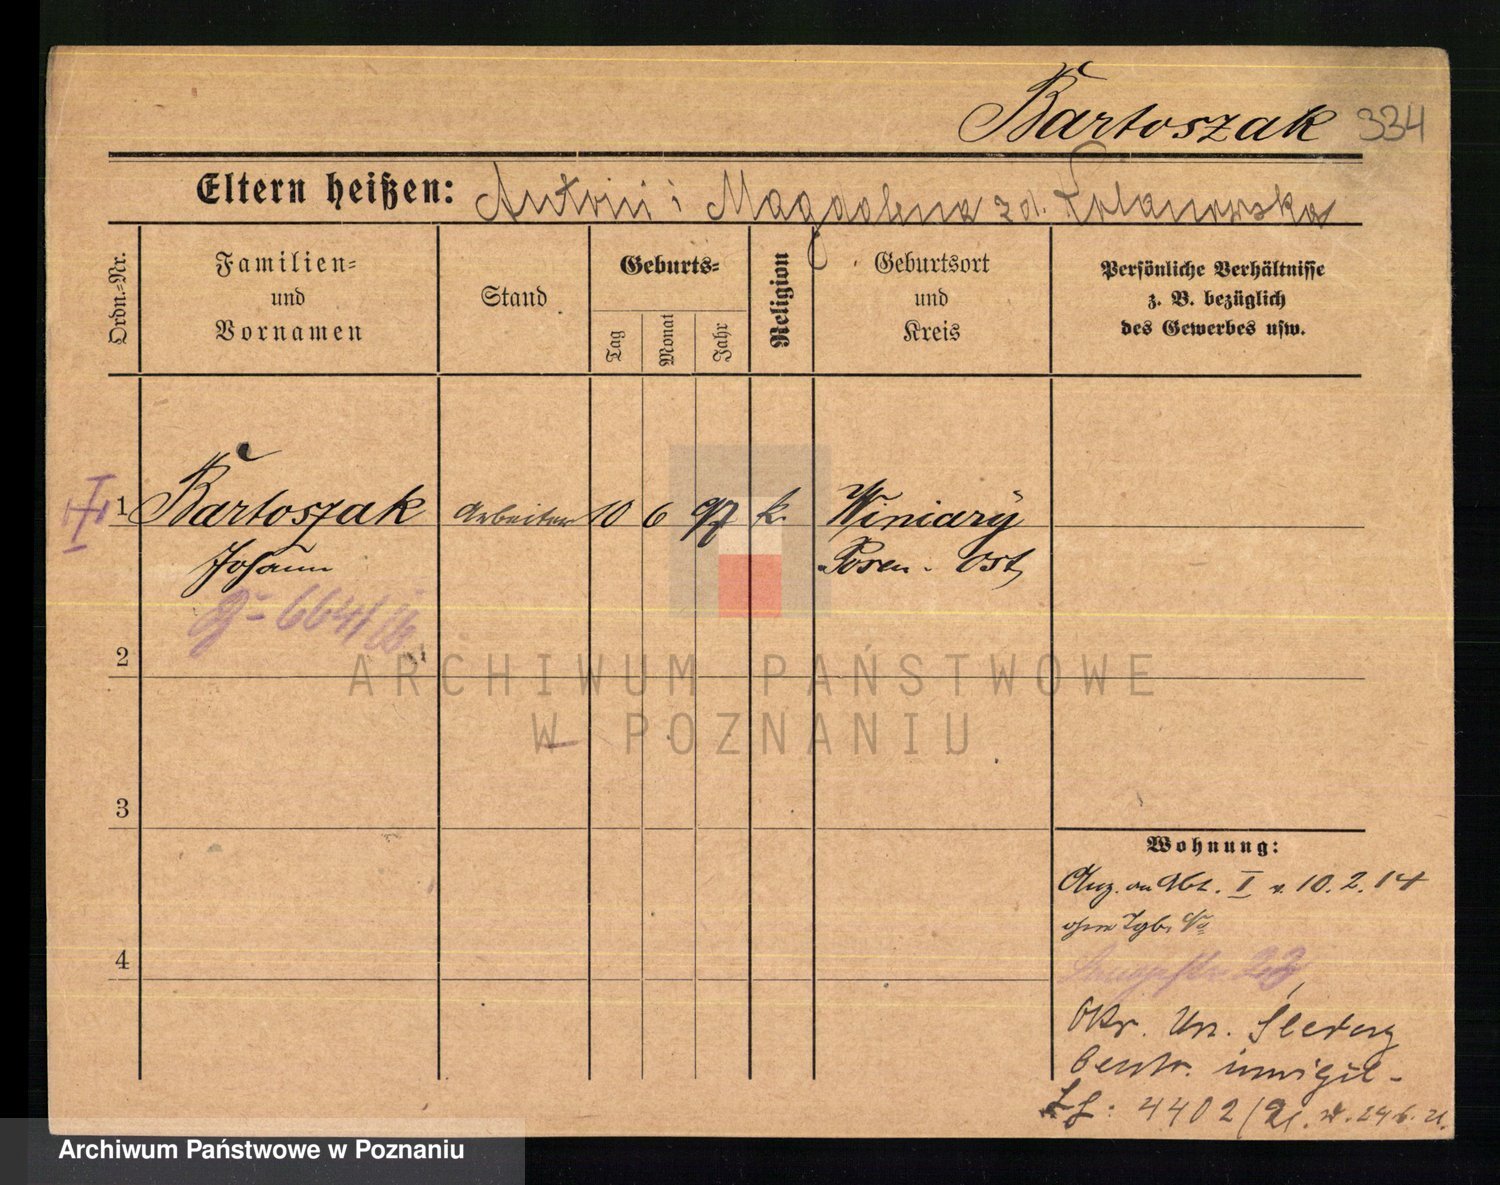 Bartoszak 334
Eltern heißen: Antoni i Magdalena z d.
Ordn.-Nr.
Familien-
und
Vornamen
Stand
Geburts-
Tag
Monat
Jahr
Religion
Geburtsort
und
Kreis
Persönliche Verhältnisse
z. B. bezüglich
des Gewerbes usw.
1 Bartoszak Arbeiter 10 6 97 k. Winiary
Johann Posen. Ost
664/
2
ARCHIWUM PAŃSTWOWE
W POZNANIU
3
Wohnung:
Anz. an Abt. I v. 10. 2. 14
ohne Tgb. No
4
23
Okr. Urz. Śledczy
inwigil-
4402/21. 24.6.21.
Archiwum Państwowe w Poznaniu